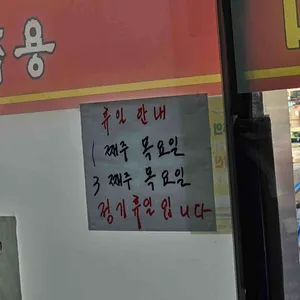 휴일 안내
1 째주 목요일
3 째주 목요일
정기휴일입니다
용